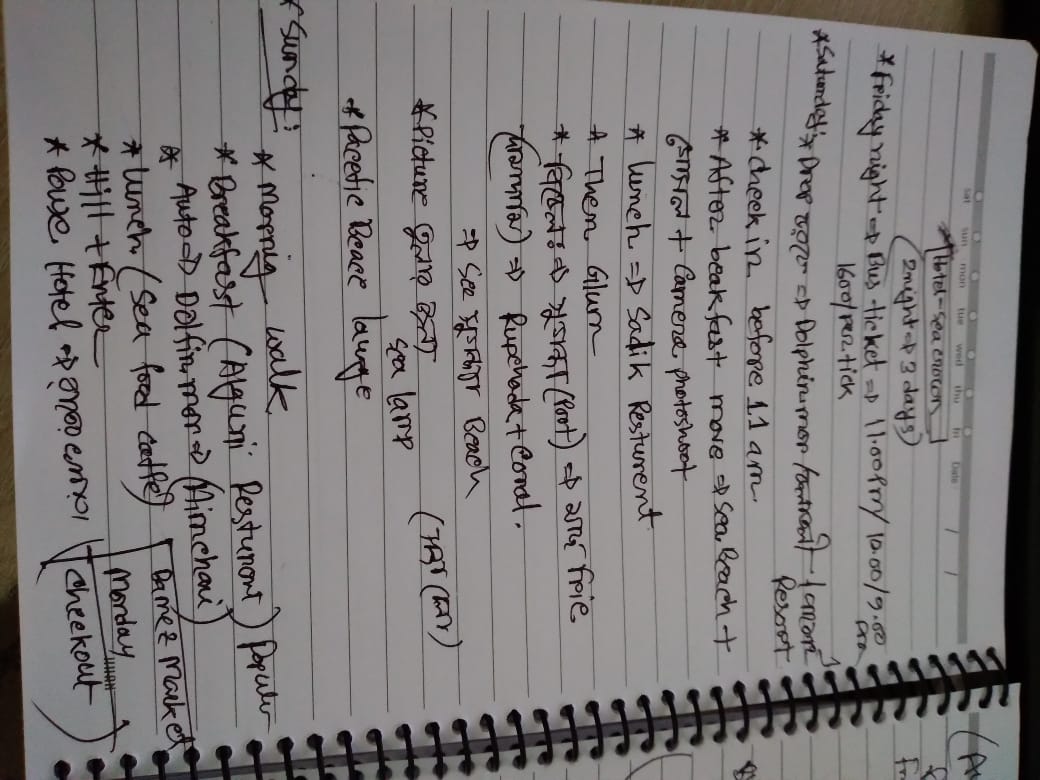 sat sun mon tue wed thu fri Date / /
Hotel-sea crown
(2night => 3 days)
* Friday night => Bus ticket => 11.00 Pm/ 10.00/9.00 pm
1600/per tick
* Saturday: * Drop => Dolphin mor /
Resort
* cheek in before 11 am.
* After beakfast move => Sea Beach +
গোসল + Camera photoshoot
* lunch => Sadik Resturent
* Then Glum
* বিকেল: => (Poot) => মাছ frie
=> Rupchada + Coral.
=> See Beach
* Picture তুলার জন্য
sea lamp
* Pacefic Beace launge
* Sunday:
* Mornig walk
* Breakfast (Alguni Resturont) Popular
* Auto => Dolfin mor => (Himchori)
* lunch (Sea food caffe)
* Hill + Enter
* Powe Hotel =>
Bamez Market
Monday
Cheekout